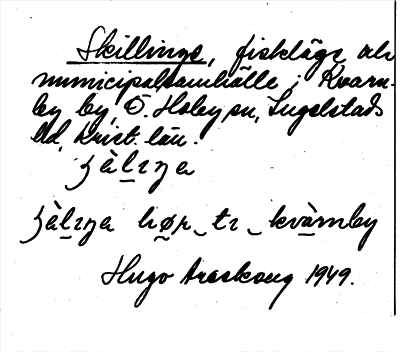 Skillinge, fiskläge och
municipalsamhälle i Kvarn-
by by, Ö. Hoby sn, Ingelstads
hd, Krist. län.
ʃèlıŋa
ʃèlıŋa hør tı kvàrnby
Hugo Areskoug 1949.